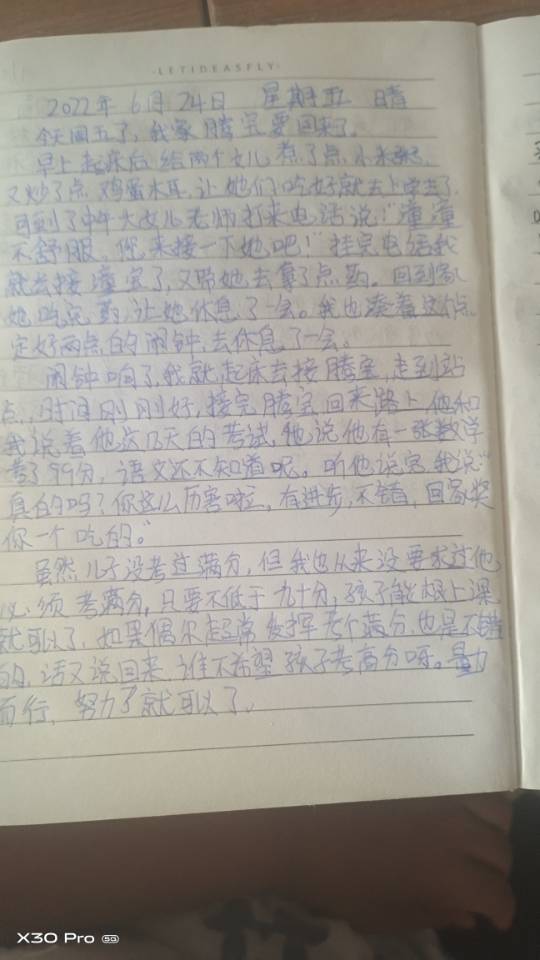 ·LETIDEASFLY·
2022年6月24日 星期五 晴
今天周五了,我家腾宝要回来了。
早上起床后给两个女儿煮了点小米粥,
又炒了点鸡蛋木耳,让她们吃好就去上学去了
可到了中午大女儿老师打来电话说!"潼潼
不舒服,你来接一下她吧!"挂完电话我
就去接潼宝了,又带她去拿了点药。回到家
她吃完药,让她休息了一会。我也凑着这个点
定好两点的闹钟,去休息了一会。
闹钟响了,我就起床去接腾宝,走到站
点,时间刚刚好,接完腾宝回来路上他和
我说着他这几天的考试,他说他有一张数学
考了99分,语文还不知道呢。听他说完我说"
真的吗?你这么厉害啦,有进步,不错,回家奖
你一个吃的。"
虽然儿子没考过满分,但我也从来没要求过他
必须考满分,只要不低于九十分,孩子能跟上课
就可以了,如果偶尔超常发挥考个满分,也是不错
的,话又说回来,谁不希望孩子考高分呀。量力
而行,努力了就可以了。
X30 Pro 5G